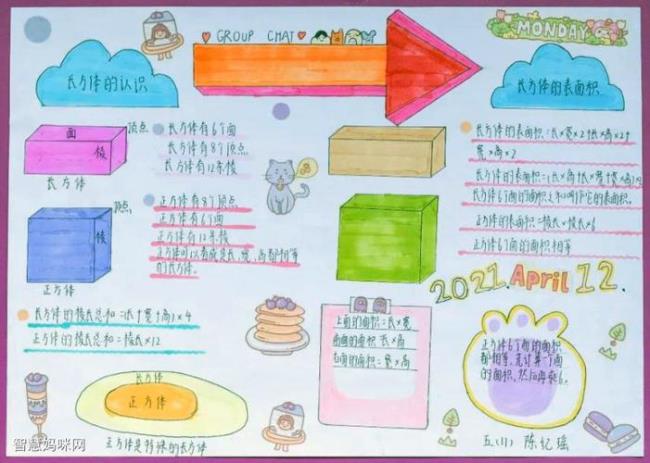 GROUP CHAT
MONDAY
长方体的认识
长方体的表面积
面
顶点
棱
长方体
长方体有6个面
长方体有8个顶点
长方体有12条棱
顶点
棱
正方体
正方体有8个顶点
正方体有6个面
正方体有12条棱
正方体可以看成是长、宽、高都相等
的长方体。
长方体的棱长总和=(长+宽+高)×4
正方体的棱长总和=棱长×12
长方体
正方体
正方体是特殊的长方体
长方体的表面积=长×宽×2+长×高×2+
宽×高×2
长方体的表面积=(长×高+长×宽+宽×高)×2
长方体6个面的面积之和叫作它的表面积。
正方体的表面积=棱长×棱长×6
正方体6个面的面积相等
2021.April 12.
上面的面积=长×宽
面的面积 长×高
右面的面积=宽×高
正方体6个面的面积
都相等,先计算一个面
的面积,然后再乘6。
五(1) 陈忆瑶
智慧妈咪网